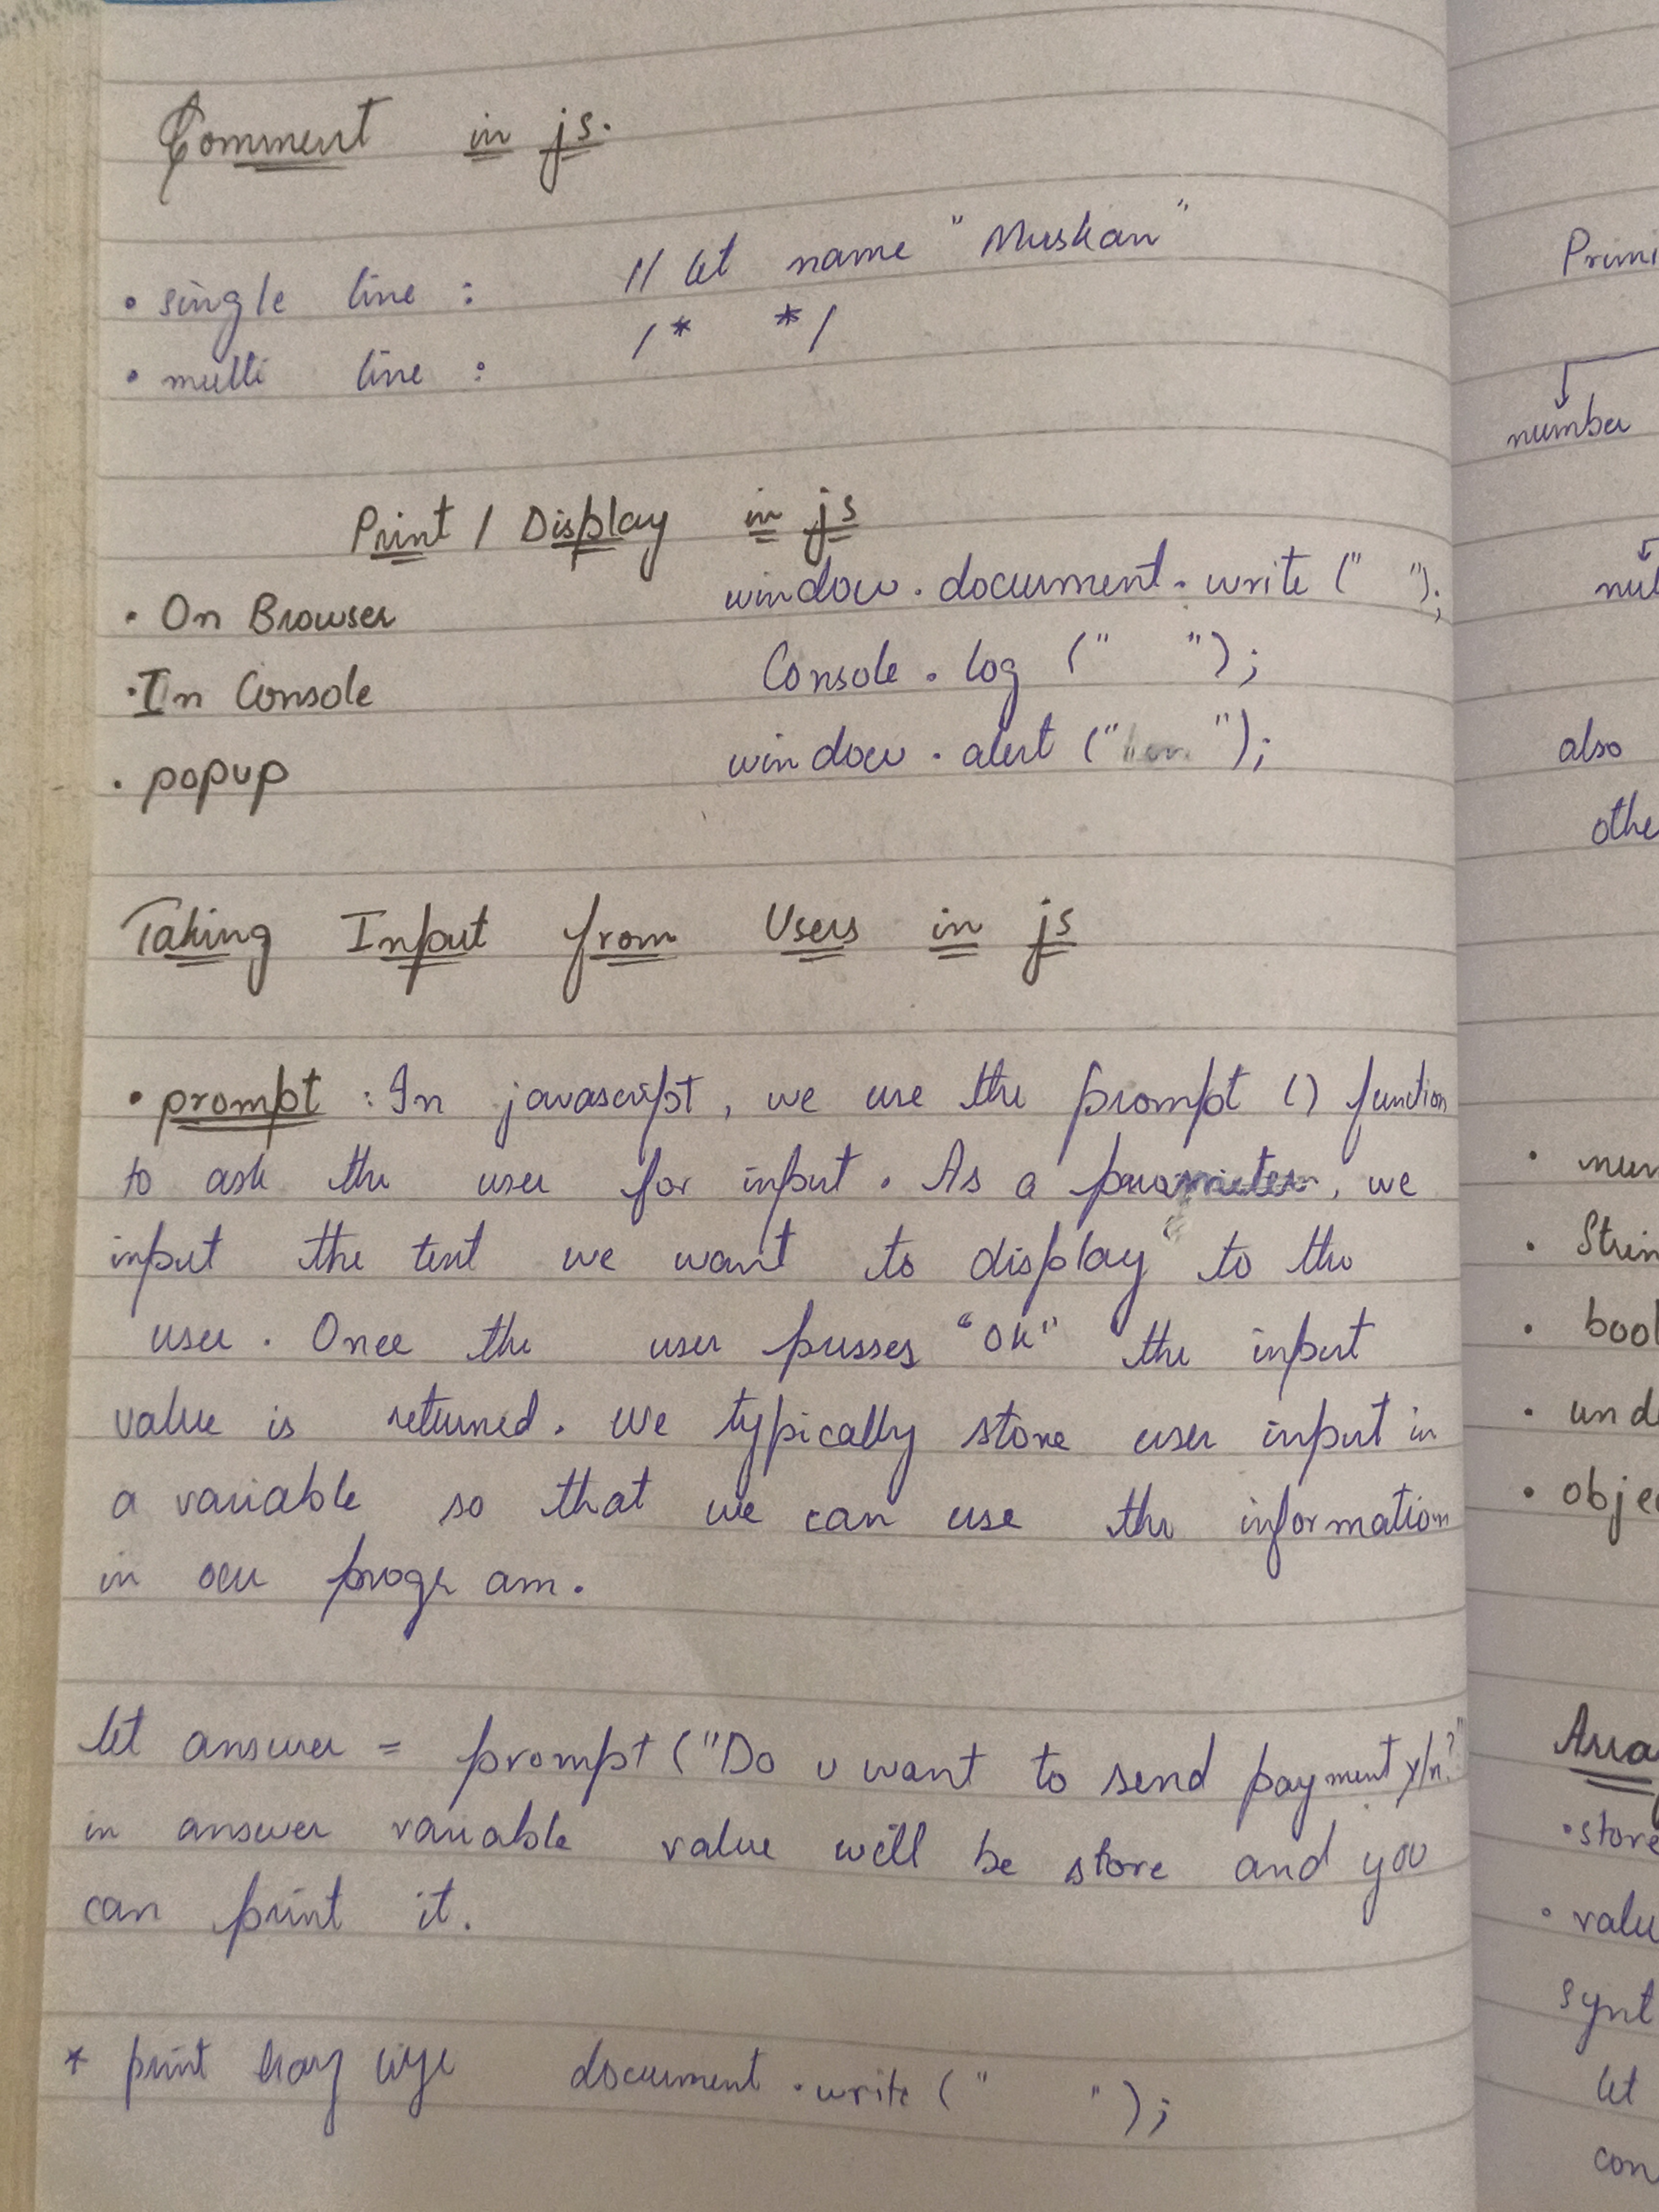 Comment in js.
• single line : // let name "Muskan"
• multi line : /* */
Print / Display in js
• On Browser window.document.write (" ");
• In Console Console.log (" ");
• popup window.alert (" ");
Taking Input from Users in js
• prompt : In javascript, we use the prompt () function
to ask the user for input. As a parameter, we
input the text we want to display to the
user. Once the user presses "OK" the input
value is returned. We typically store user input in
a variable so that we can use the information
in our program.
let answer = prompt ("Do u want to send payment y/n?"
in answer variable value will be store and you
can print it.
* print document.write (" ");
Primi
number
nul
also
othe
• num
• Strin
• bool
• unde
• objec
Arra
• store
• valu
synt
let
con